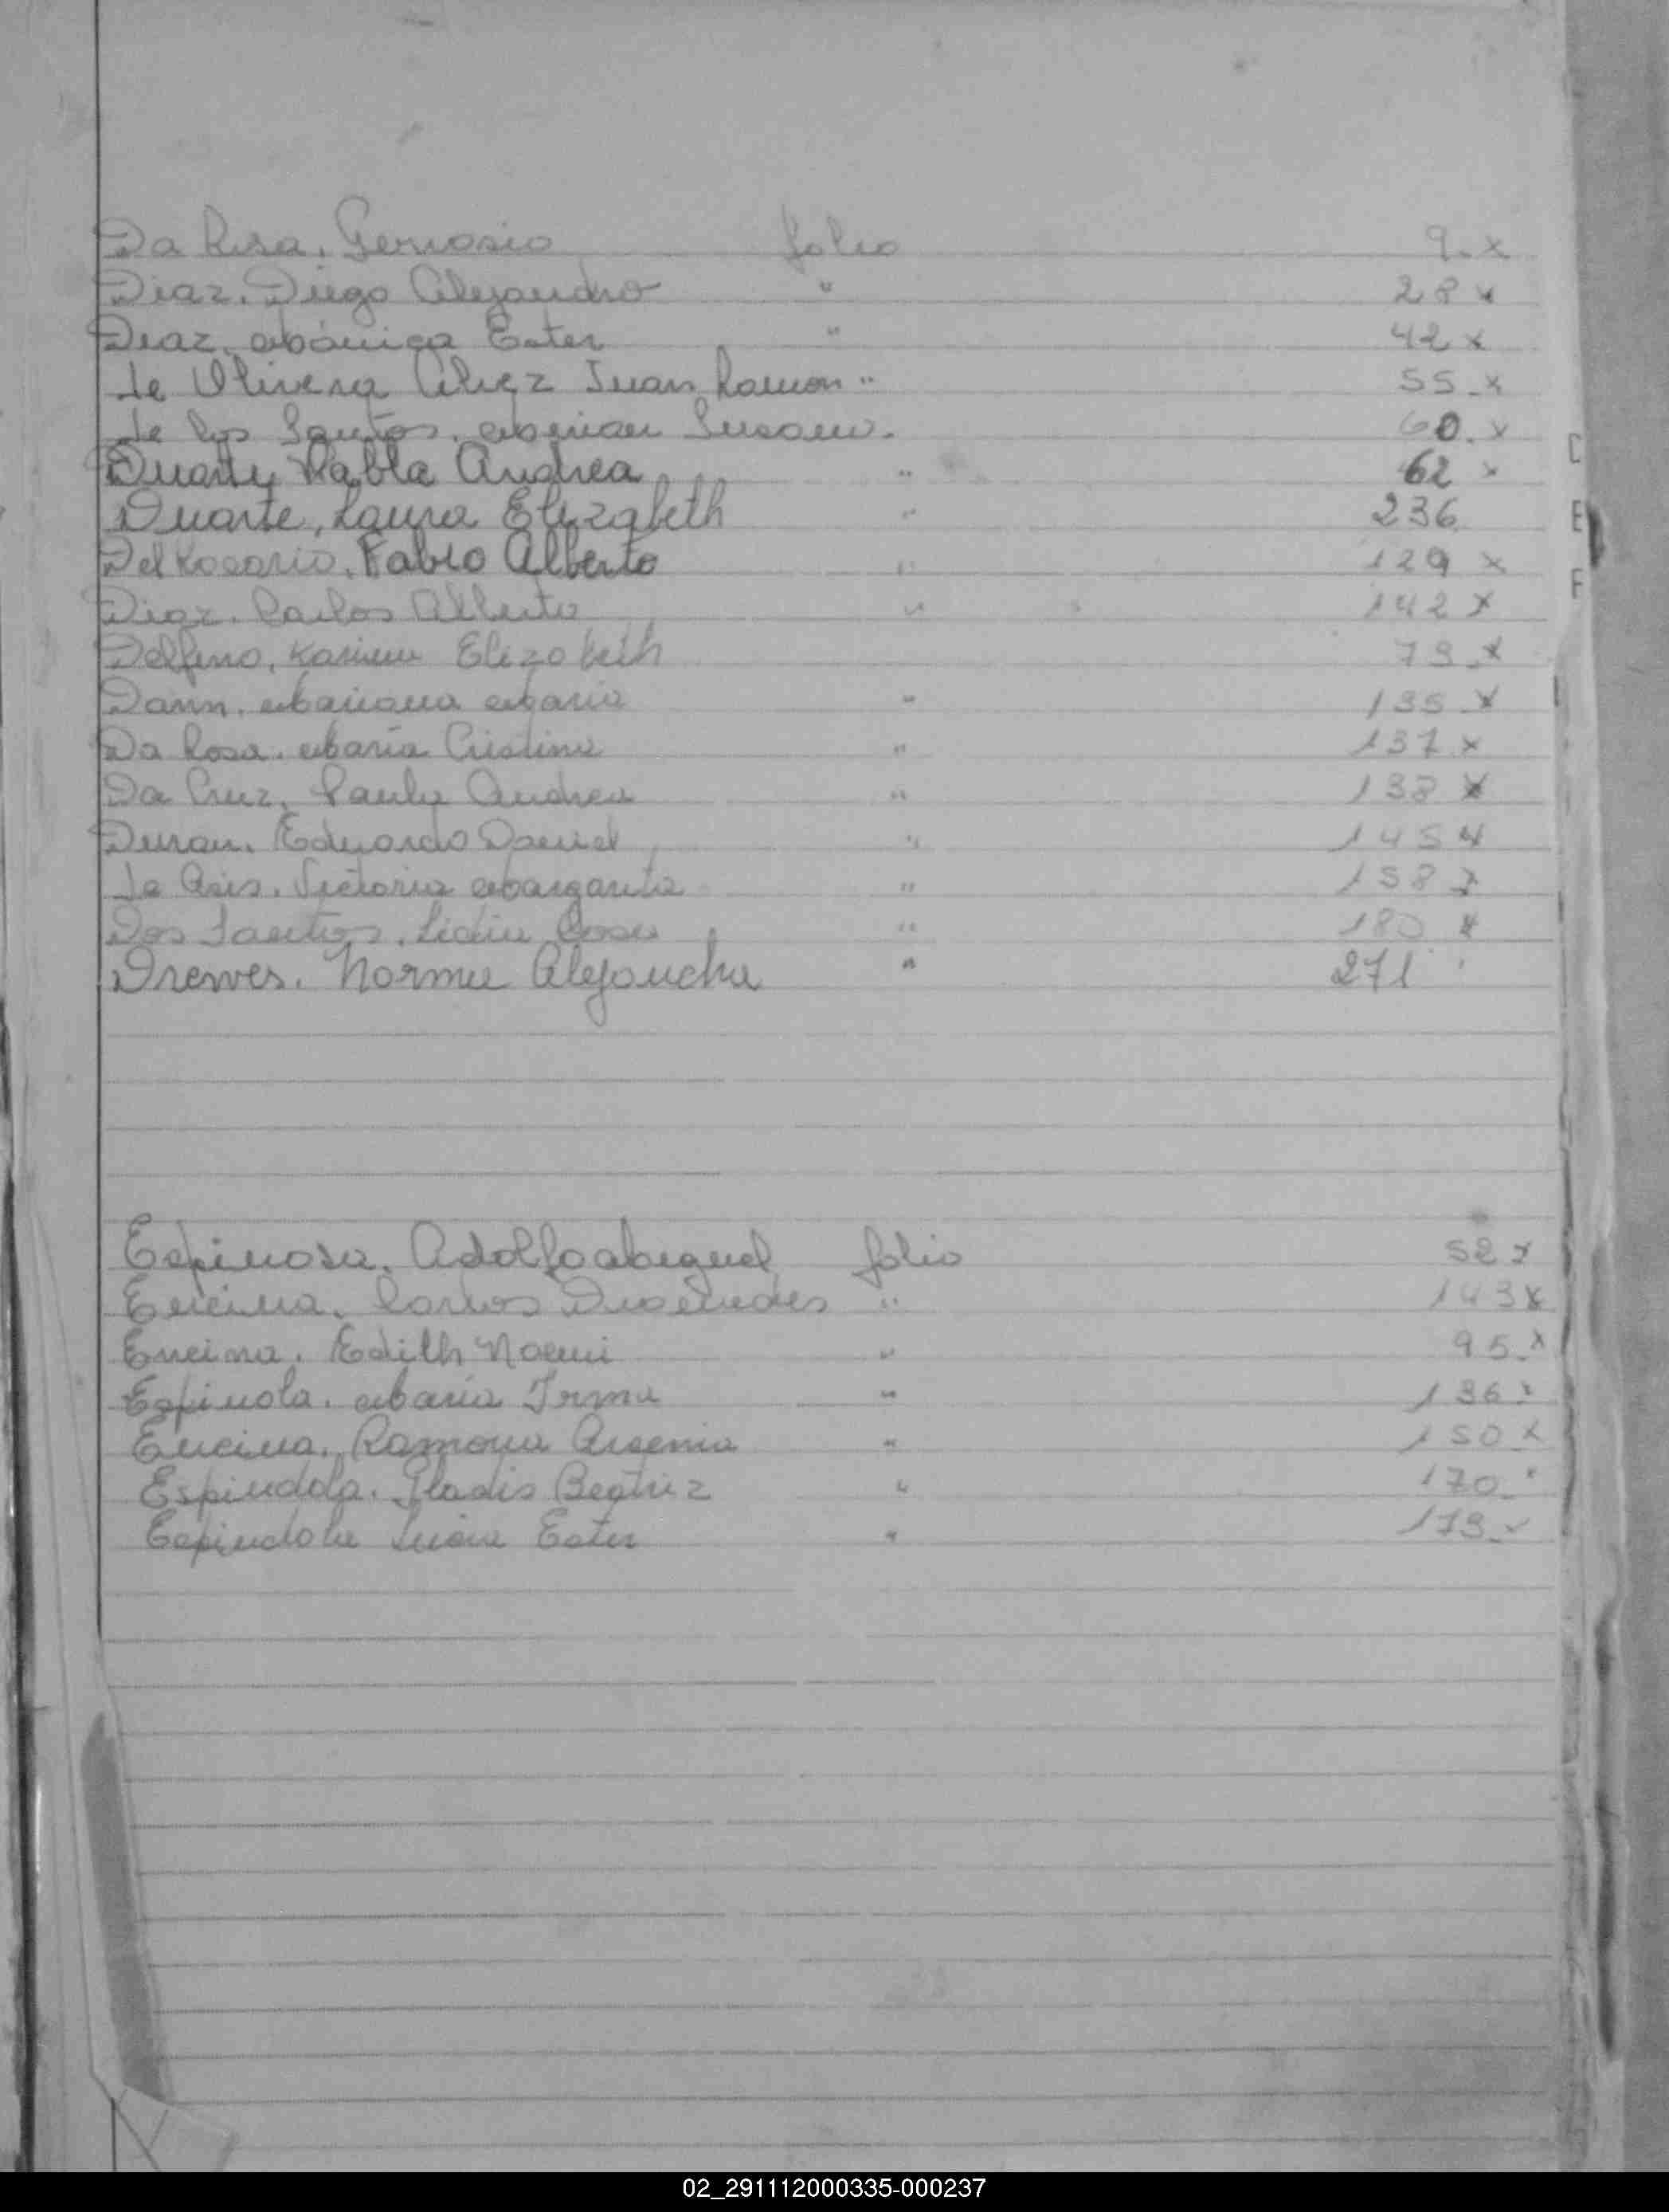 Da Rosa, Gervasio folio 9. x
Diaz, Diego Alejandro " 28 x
Diaz, Mónica Ester " 42 x
de Olivera Alvez Juan Ramon " 55 x
de los Santos, Miriam Susana. 60. x
Duarte, Pabla Andrea " 62 x
Duarte, Laura Elizabeth " 236
Del Rosario, Fabio Alberto " 129 x
Diaz, Carlos Alberto " 142 x
Delfino, Karina Elizabeth 79 x
Dann, Mariana Maria " 135 x
Da Rosa, María Cristina " 137 x
Da Cruz, Paula Andrea " 138 x
Duran, Eduardo Daniel " 145 x
de Asis, Victoria Margarita " 158 x
Dos Santos, Lidia Rosa " 180 x
Drewes, Norma Alejandra " 271
Espinosa, Adolfo Miguel folio 52 x
Encina, Carlos " 143 x
Encina, Edith Noemi " 95. x
Espinola, María Irma " 136 x
Encina, Ramona Arsenia " 150 x
Espindola, Gladis Beatriz " 170 x
Espindola Lucia Ester " 179
C
E
F
02_291112000335-000237